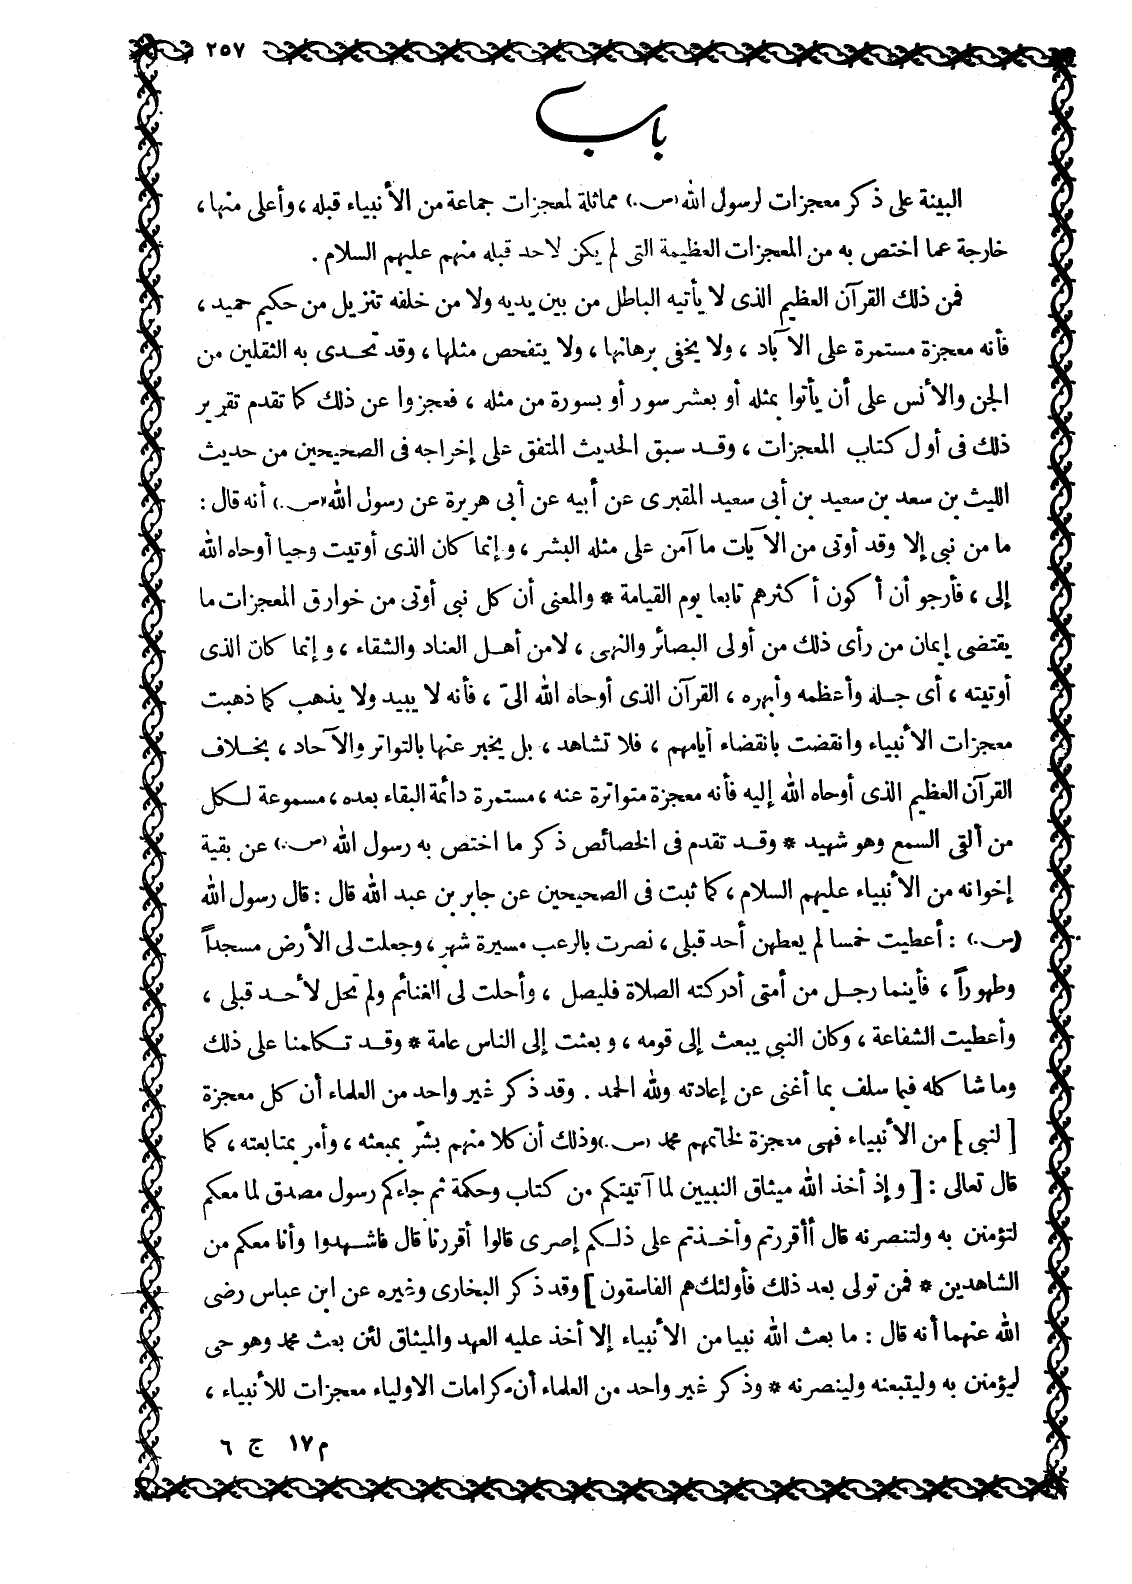 ٢٥٧
باب
البينة على ذكر معجزات لرسول الله (ص.) مماثلة لمعجزات جماعة من الأنبياء قبله ، وأعلى منها ،
خارجة عما اختص به من المعجزات العظيمة التى لم يكن لاحد قبله منهم عليهم السلام .
فمن ذلك القرآن العظيم الذى لا يأتيه الباطل من بين يديه ولا من خلفه تنزيل من حكيم حميد ،
فأنه معجزة مستمرة على الآباد ، ولا يخفى برهانها ، ولا يتفحص مثلها ، وقد تحدى به الثقلين من
الجن والأنس على أن يأتوا بمثله أو بعشر سور أو بسورة من مثله ، فعجزوا عن ذلك كما تقدم تقرير
ذلك فى أول كتاب المعجزات ، وقد سبق الحديث المتفق على إخراجه فى الصحيحين من حديث
الليث بن سعد بن سعيد بن أبى سعيد المقبرى عن أبيه عن أبى هريرة عن رسول الله (ص.) أنه قال :
ما من نبى إلا وقد أوتى من الآيات ما آمن على مثله البشر ، وإنما كان الذى أوتيت وحيا أوحاه الله
إلى ، فأرجو أن أكون أكثرهم تابعا يوم القيامة * والمعنى أن كل نبى أوتى من خوارق المعجزات ما
يقتضى إيمان من رأى ذلك من أولى البصائر والنهى ، لامن أهل العناد والشقاء ، وإنما كان الذى
أوتيته ، أى جله وأعظمه وأبهره ، القرآن الذى أوحاه الله الىّ ، فأنه لا يبيد ولا يذهب كما ذهبت
معجزات الأنبياء وانقضت بانقضاء أيامهم ، فلا تشاهد ، بل يخبر عنها بالتواتر والآحاد ، بخلاف
القرآن العظيم الذى أوحاه الله إليه فأنه معجزة متواترة عنه ، مستمرة دائمة البقاء بعده ، مسموعة لكل
من ألقى السمع وهو شهيد * وقد تقدم فى الخصائص ذكر ما اختص به رسول الله (ص.) عن بقية
إخوانه من الأنبياء عليهم السلام ، كما ثبت فى الصحيحين عن جابر بن عبد الله قال : قال رسول الله
(ص.) : أعطيت خمسا لم يعطهن أحد قبلى ، نصرت بالرعب مسيرة شهر ، وجعلت لى الأرض مسجداً
وطهوراً ، فأينما رجل من أمتى أدركته الصلاة فليصل ، وأحلت لى الغنائم ولم تحل لأحد قبلى ،
وأعطيت الشفاعة ، وكان النبى يبعث إلى قومه ، وبعثت إلى الناس عامة * وقد تكلمنا على ذلك
وما شاكله فيما سلف بما أغنى عن إعادته ولله الحمد . وقد ذكر غير واحد من العلماء أن كل معجزة
[ لنبى ] من الأنبياء فهى معجزة لخاتمهم محمد (ص.) وذلك أن كلا منهم بشّر بمبعثه ، وأمر بمتابعته ، كما
قال تعالى : [ وإذ أخذ الله ميثاق النبيين لما آتيتكم من كتاب وحكمة ثم جاءكم رسول مصدق لما معكم
لتؤمنن به ولتنصرنه قال أأقررتم وأخذتم على ذلكم إصرى قالوا أقررنا قال فاشهدوا وأنا معكم من
الشاهدين * فمن تولى بعد ذلك فأولئك هم الفاسقون ] وقد ذكر البخارى وغيره عن ابن عباس رضى
الله عنهما أنه قال : ما بعث الله نبيا من الأنبياء إلا أخذ عليه العهد والميثاق لئن بعث محمد وهو حى
ليؤمنن به وليتبعنه ولينصرنه * وذكر غير واحد من العلماء أن كرامات الاولياء معجزات للأنبياء ،
م ١٧ ج ٦